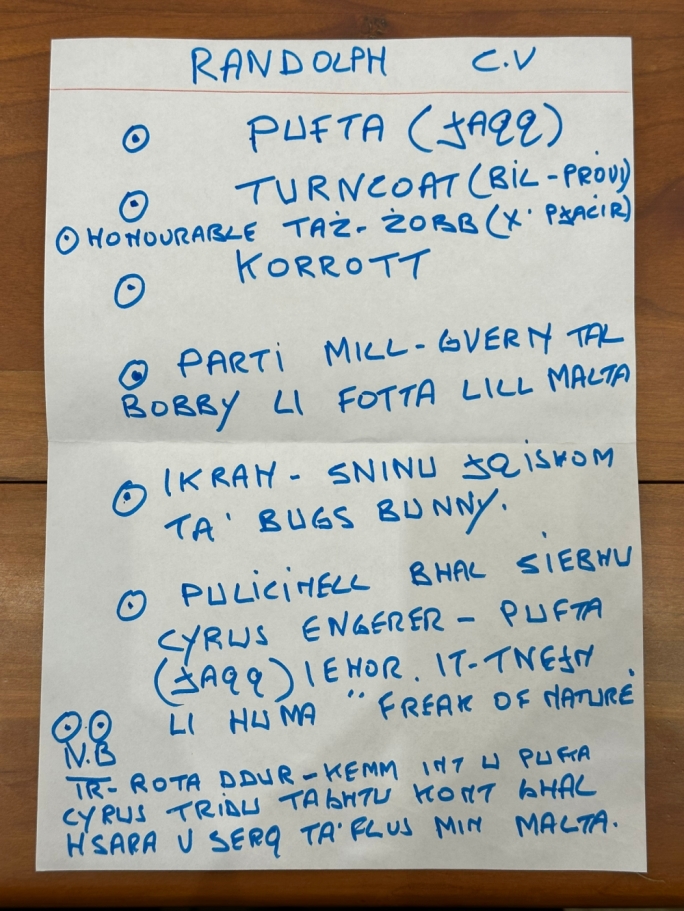 RANDOLPH C.V
PUFTA (ĦAQQ)
TURNCOAT (BIL-PROVI)
HONOURABLE TAŻ-ŻOBB (X'PJAĊIR)
KORROTT
PARTI MILL-GVERN TAL
BOBBY LI FOTTA LILL MALTA
IKRAH - SNINU ĦQISHOM
TA' BUGS BUNNY.
PULIĊINELL BHAL SIEBHU
CYRUS ENGERER - PUFTA
(ĦAQQ) IEHOR. IT-TNEJN
LI HUMA "FREAK OF NATURE"
N.B
IR-ROTA DDUR - KEMM INT U PUFTA
CYRUS TRIDU TAGHTU KONT GHAL
HSARA U SERQ TA' FLUS MIN MALTA.